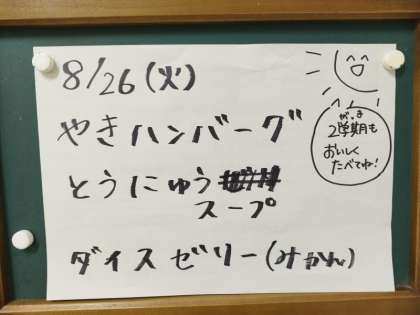 8/26(火)
やきハンバーグ
とうにゅう
スープ
ダイスゼリー(みかん)
2学期も
おいしく
たべてね!